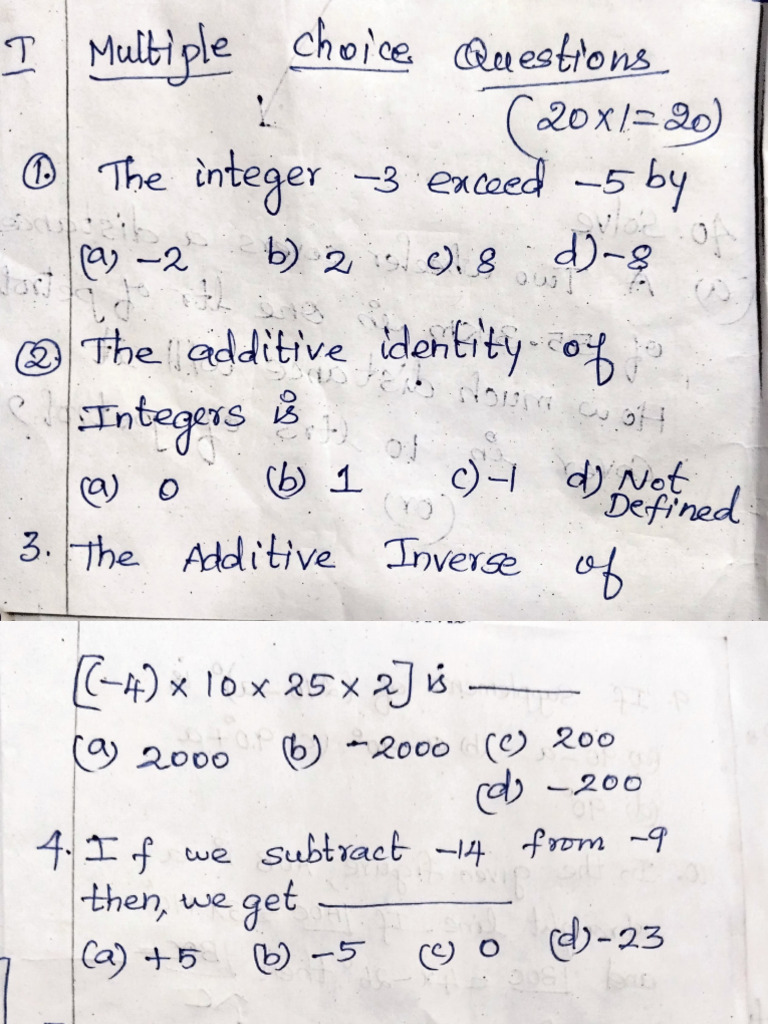 I Multiple Choice Questions
(20x1=20)
1. The integer -3 exceed -5 by
(a) -2 b) 2 c). 8 d) -8
2) The additive identity of
Integers is
(a) 0 (b) 1 c) -1 d) Not
Defined
3. The Additive Inverse of
[(-4) x 10 x 25 x 2] is ______
(a) 2000 (b) -2000 (c) 200
(d) -200
4. If we subtract -14 from -9
then, we get ______
(a) +5 (b) -5 (c) 0 (d) -23